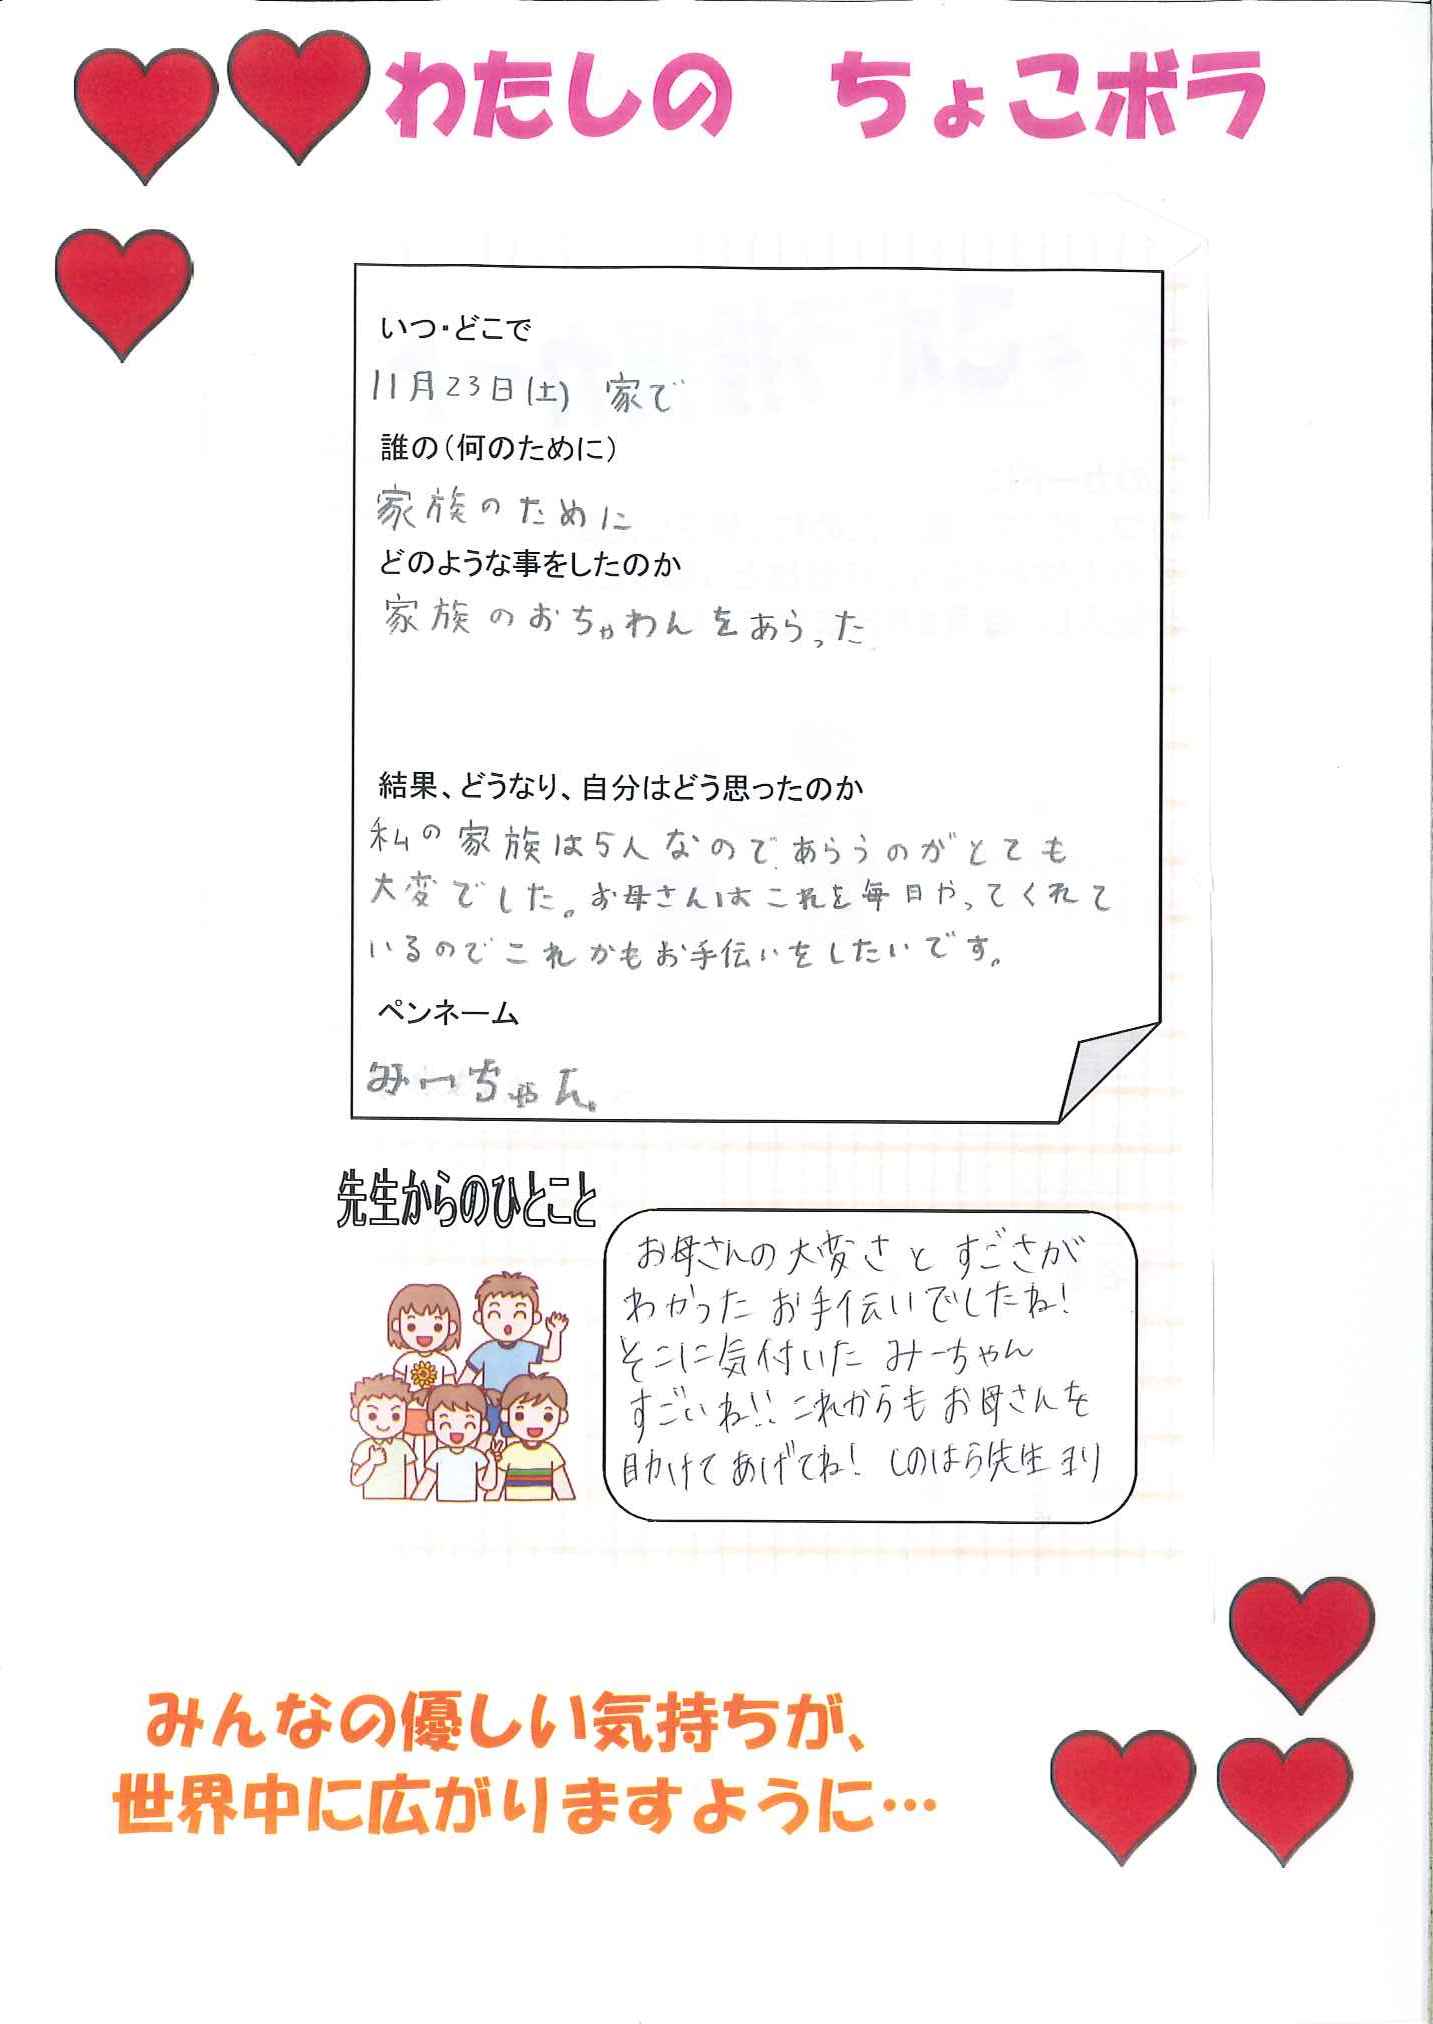 わたしの　ちょこボラ
いつ・どこで
11月23日(土)　家で
誰の（何のために）
家族のために
どのような事をしたのか
家族のおちゃわんをあらった
結果、どうなり、自分はどう思ったのか
私の家族は5人なのであらうのがとても
大変でした。お母さんはこれを毎日やってくれて
いるのでこれかもお手伝いをしたいです。
ペンネーム
みーちゃん。
先生からのひとこと
お母さんの大変さとすごさが
わかったお手伝いでしたね!
そこに気付いたみーちゃん
すごいね!!これからもお母さんを
助けてあげてね! しのはら先生ヨリ
みんなの優しい気持ちが、
世界中に広がりますように…